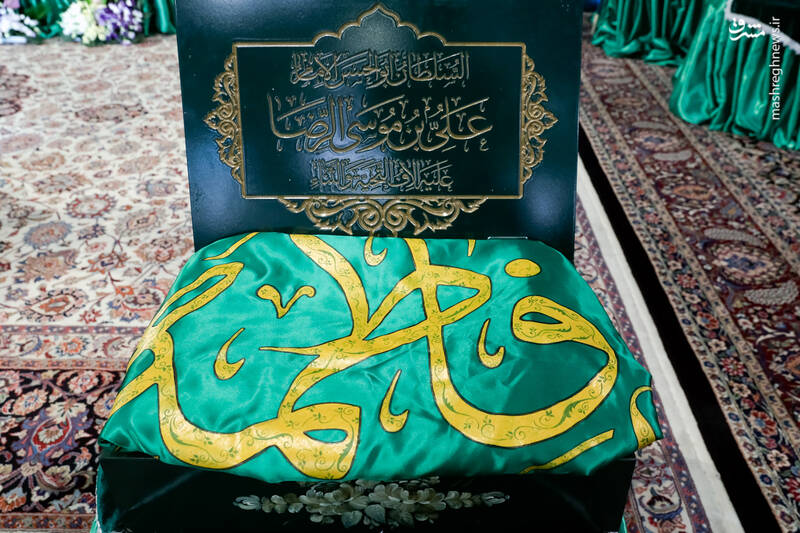 السلطان أبوالحسن الإمام
عَلِيِّ بْنِ مُوسَى الرِّضَا
عليه آلاف التحية والثناء
فاطمة
مشرق
mashreghnews.ir